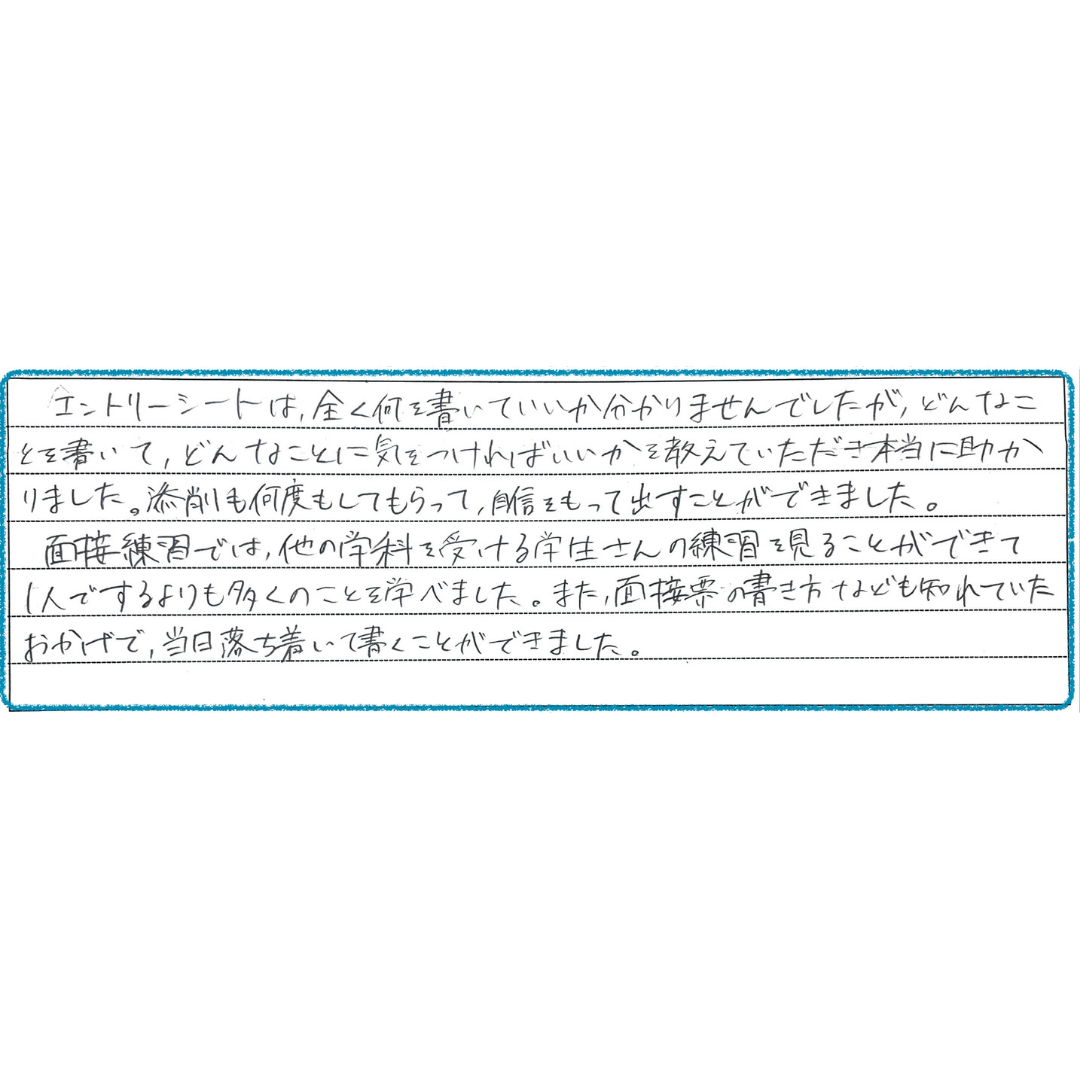 エントリーシートは,全く何を書いていいか分かりませんでしたが,どんなこ
とを書いて,どんなことに気をつければいいかを教えていただき本当に助か
りました。添削も何度もしてもらって,自信をもって出すことができました。
面接練習では,他の学科を受ける学生さんの練習を見ることができて
1人でするよりも多くのことを学べました。また,面接票の書き方なども知れていた
おかげで,当日落ち着いて書くことができました。